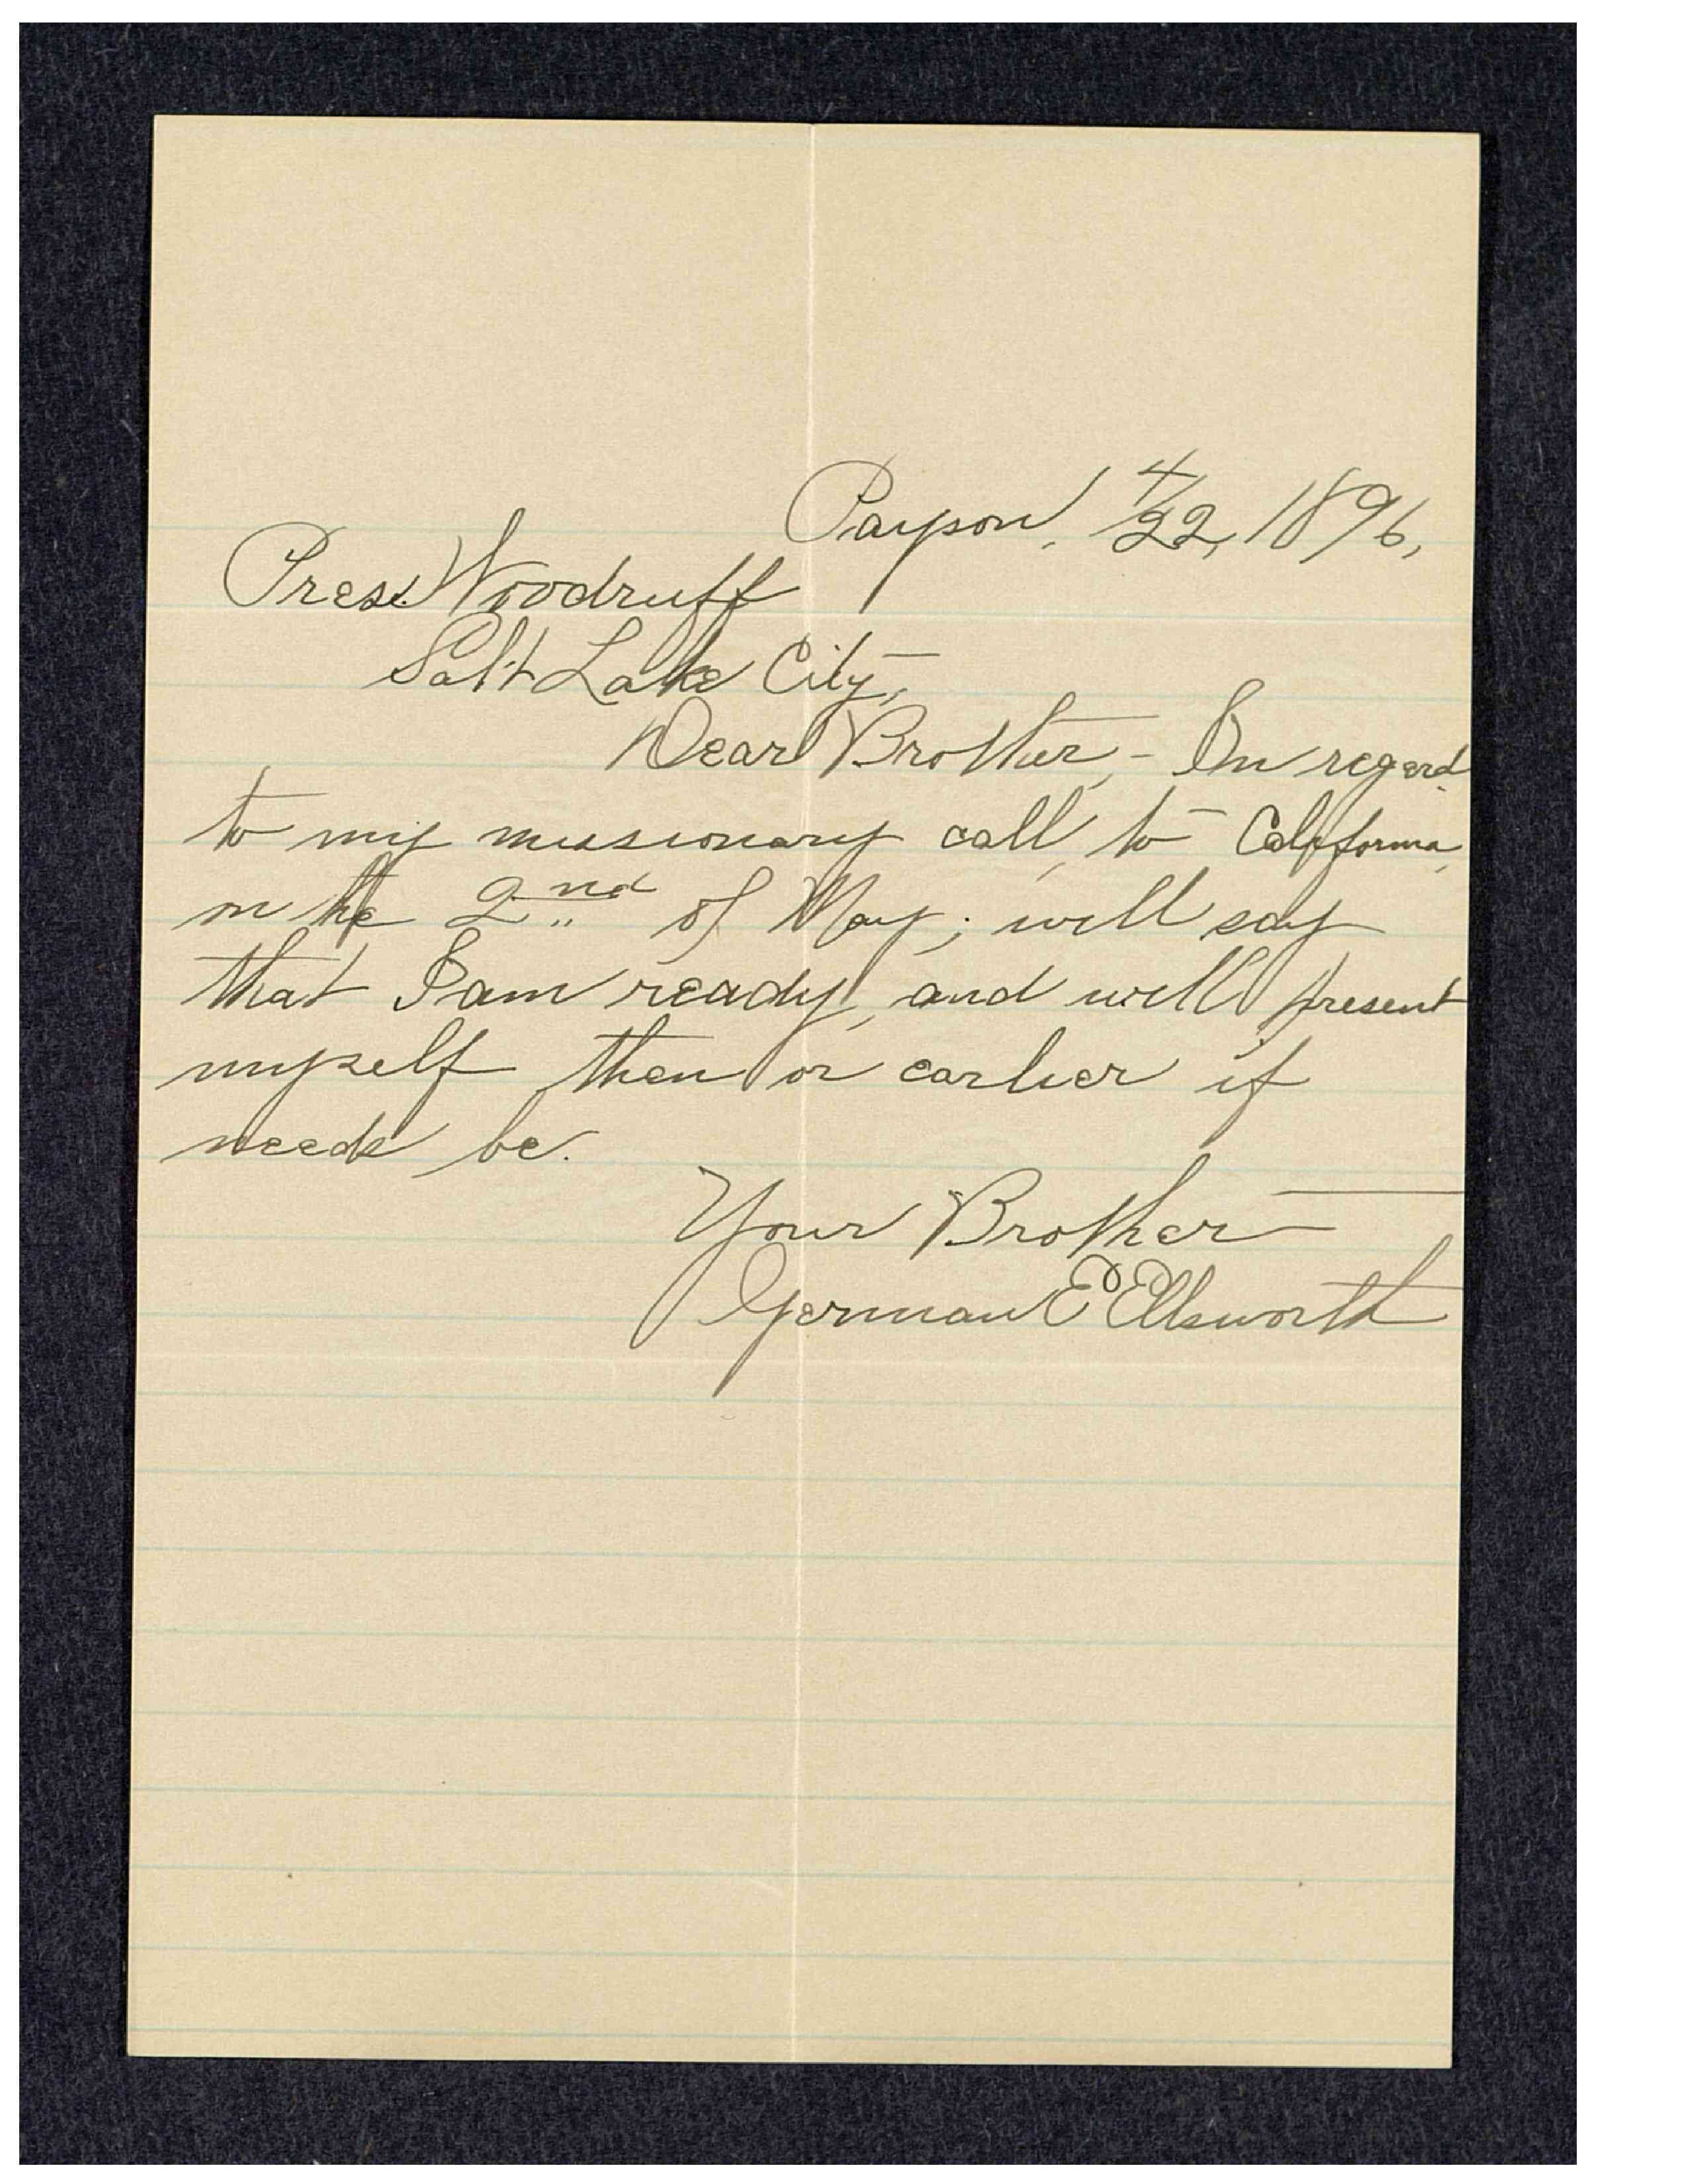 Payson, 4/22, 1896,
Pres. Woodruff
Salt Lake City,
Dear Brother,- In regard
to my missionary call, to California,
on the 2nd of May; will say
that I am ready, and will present
myself then or earlier if
needs be.
Your Brother
German E Ellsworth